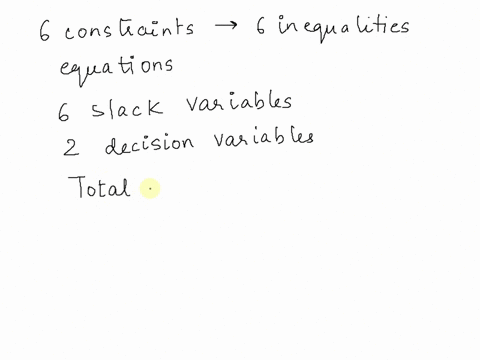 6 constraints → 6 inequalities
equations
6 slack variables
2 decision variables
Total